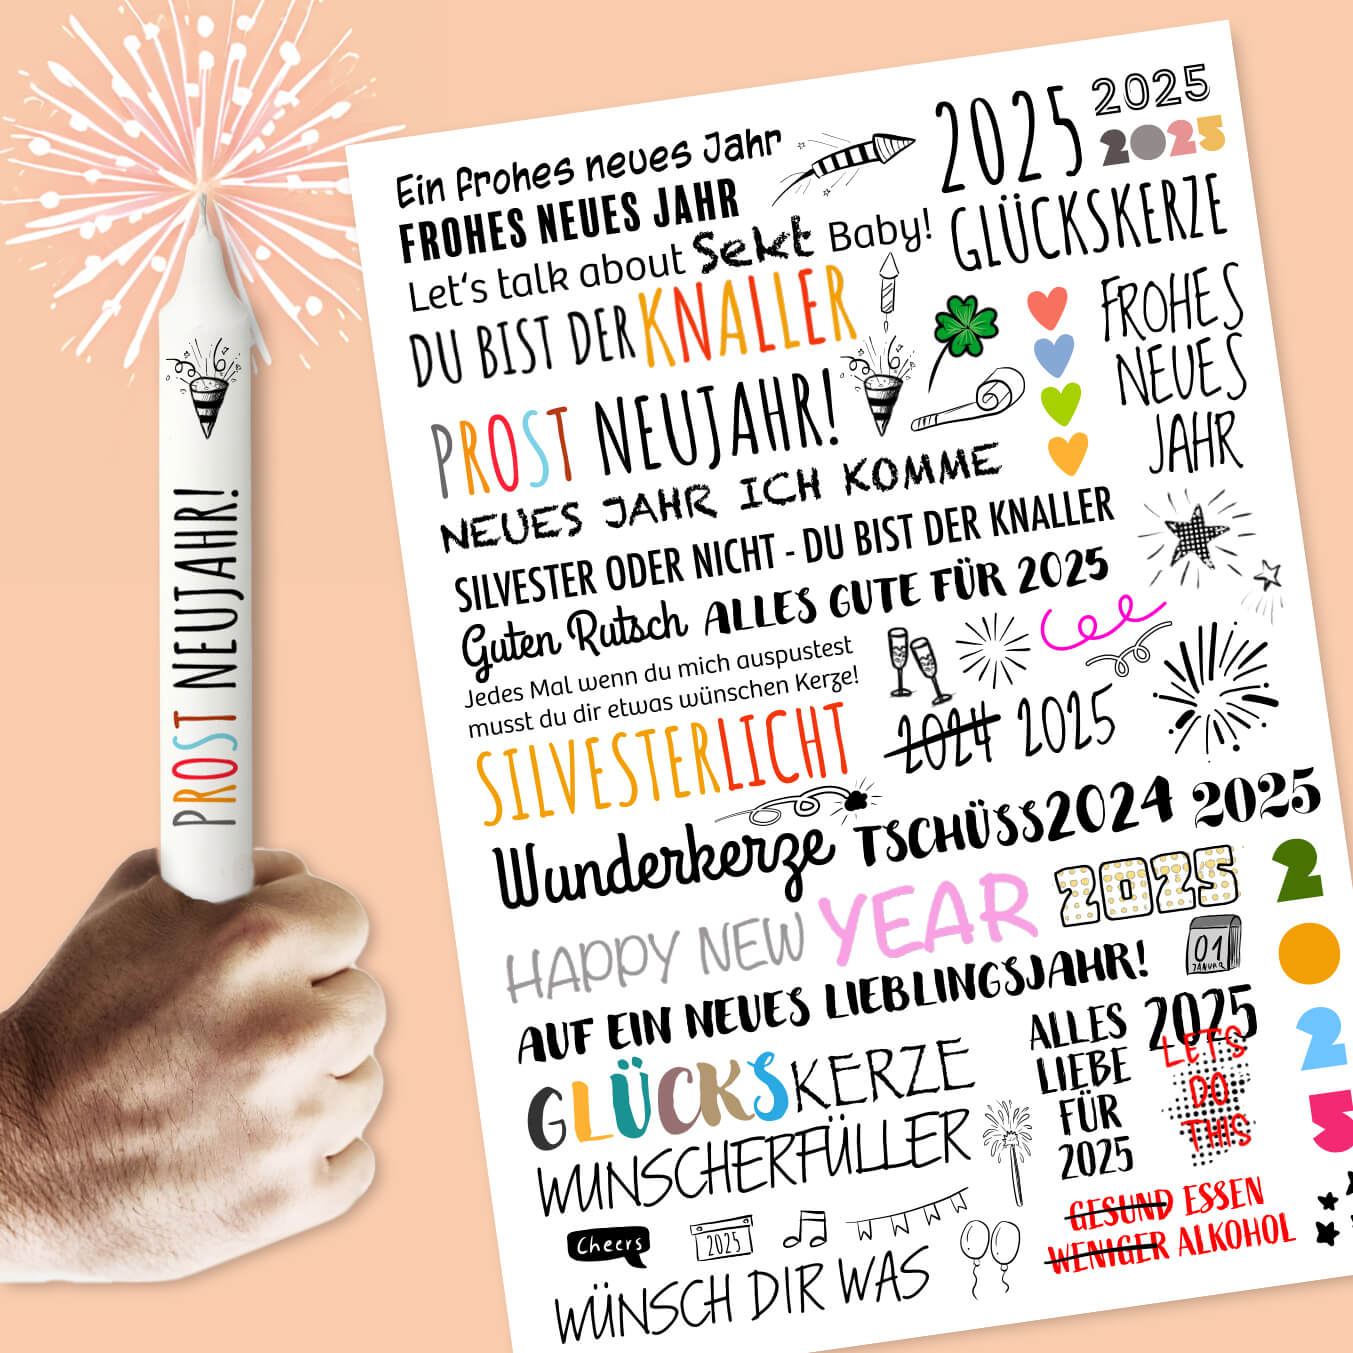 PROST NEUJAHR!
Ein frohes neues Jahr
FROHES NEUES JAHR
Let's talk about Sekt Baby!
DU BIST DER KNALLER
PROST NEUJAHR!
NEUES JAHR ICH KOMME
SILVESTER ODER NICHT - DU BIST DER KNALLER
Guten Rutsch ALLES GUTE FÜR 2025
Jedes Mal wenn du mich auspustest
musst du dir etwas wünschen Kerze!
SILVESTERLICHT
2025
2025
2025
GLÜCKSKERZE
FROHES
NEUES
JAHR
2024 2025
Wunderkerze TSCHÜSS2024 2025
HAPPY NEW YEAR 2025
2
0
2
5
01
JANUAR
AUF EIN NEUES LIEBLINGSJAHR!
GLÜCKSKERZE
WUNSCHERFÜLLER
ALLES
LIEBE
FÜR
2025
2025
LETS
DO
THIS
Cheers
2025
WÜNSCH DIR WAS
GESUND ESSEN
WENIGER ALKOHOL